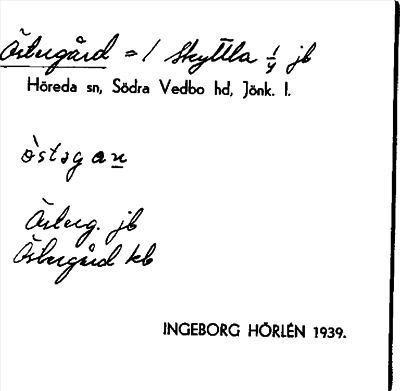 Östergård = 1 Skyttla 1/4 jb
Höreda sn, Södra Vedbo hd, Jönk. l.
òstəg an
Österg. jb
Östergård kb
INGEBORG HÖRLÉN 1939.